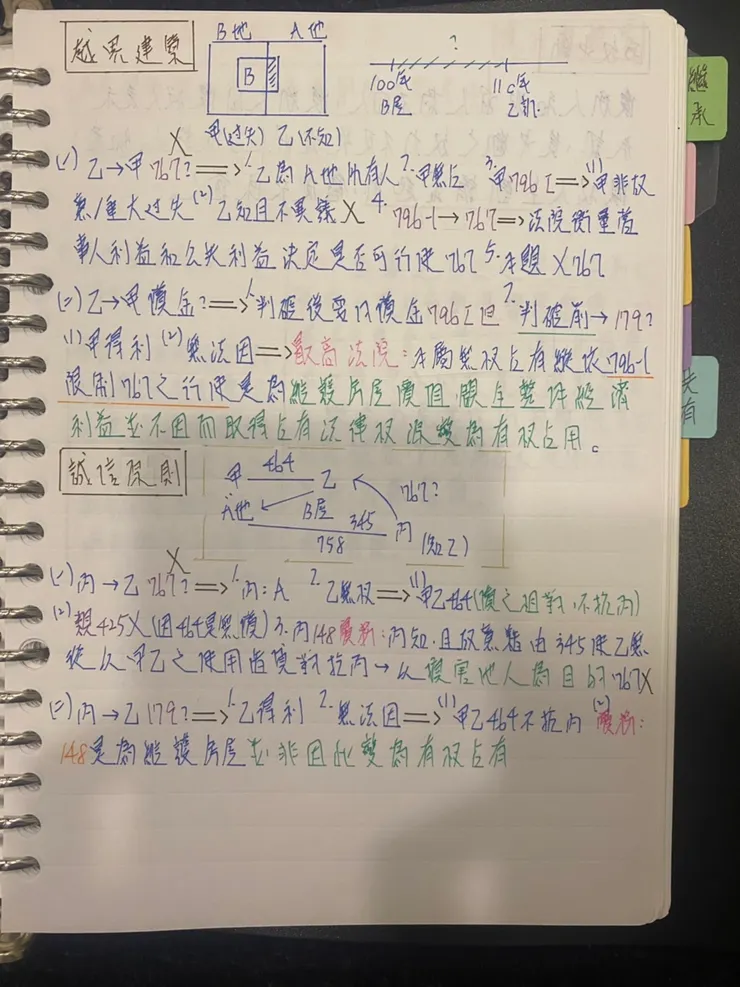 越界建築
B地 A地
B
甲(过失) 乙(不知)
?
100年 110年
B屋 乙訴
繼承
共有
X
(一) 乙→甲 767? ⇒ 1. 乙為A地所有人 2. 甲無占 3. 甲796Ⅰ ⇒ (1) 甲非故
意/重大过失 (2) 乙知且不異議 X 4. 796-1→767 ⇒ 法院衡量當
事人利益和公共利益決定是否可行使767 5. 本題 X 767
(二) 乙→甲 償金? ⇒ 1. 判確後要以償金796Ⅰ但 2. 判確前→179?
(1) 甲得利 (2) 無法因 ⇒ 最高法院:本屬無权占有縱依796-1
限制767之行使是為維護房屋價值,顧全整体經濟
利益並不因而取得占有法律权源變為有权占用。
誠信原則
甲 464 乙 767?
A地 B屋 345 丙 (知乙)
758
X
(一) 丙→乙 767? ⇒ 1. 丙:A 2. 乙無权 ⇒ (1) 甲乙464 (債之相對,不抗丙)
(2) 類425X (因464是無償) 3. 丙148 實務:丙知,且故意藉由345使乙無
從以甲乙之使用借貸對抗丙→以損害他人為目的 767X
(二) 丙→乙 179? ⇒ 1. 乙得利 2. 無法因 ⇒ (1) 甲乙464不抗丙 (2) 實務:
148是為維護房屋並非因此變為有权占有